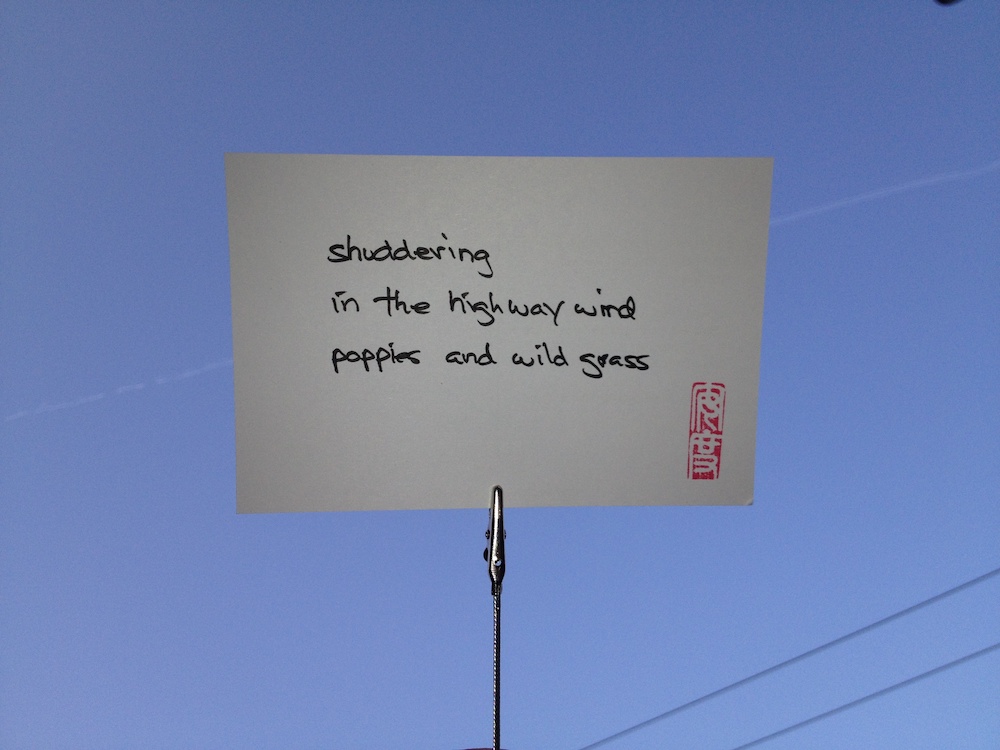 shuddering
in the highway wind
poppies and wild grass